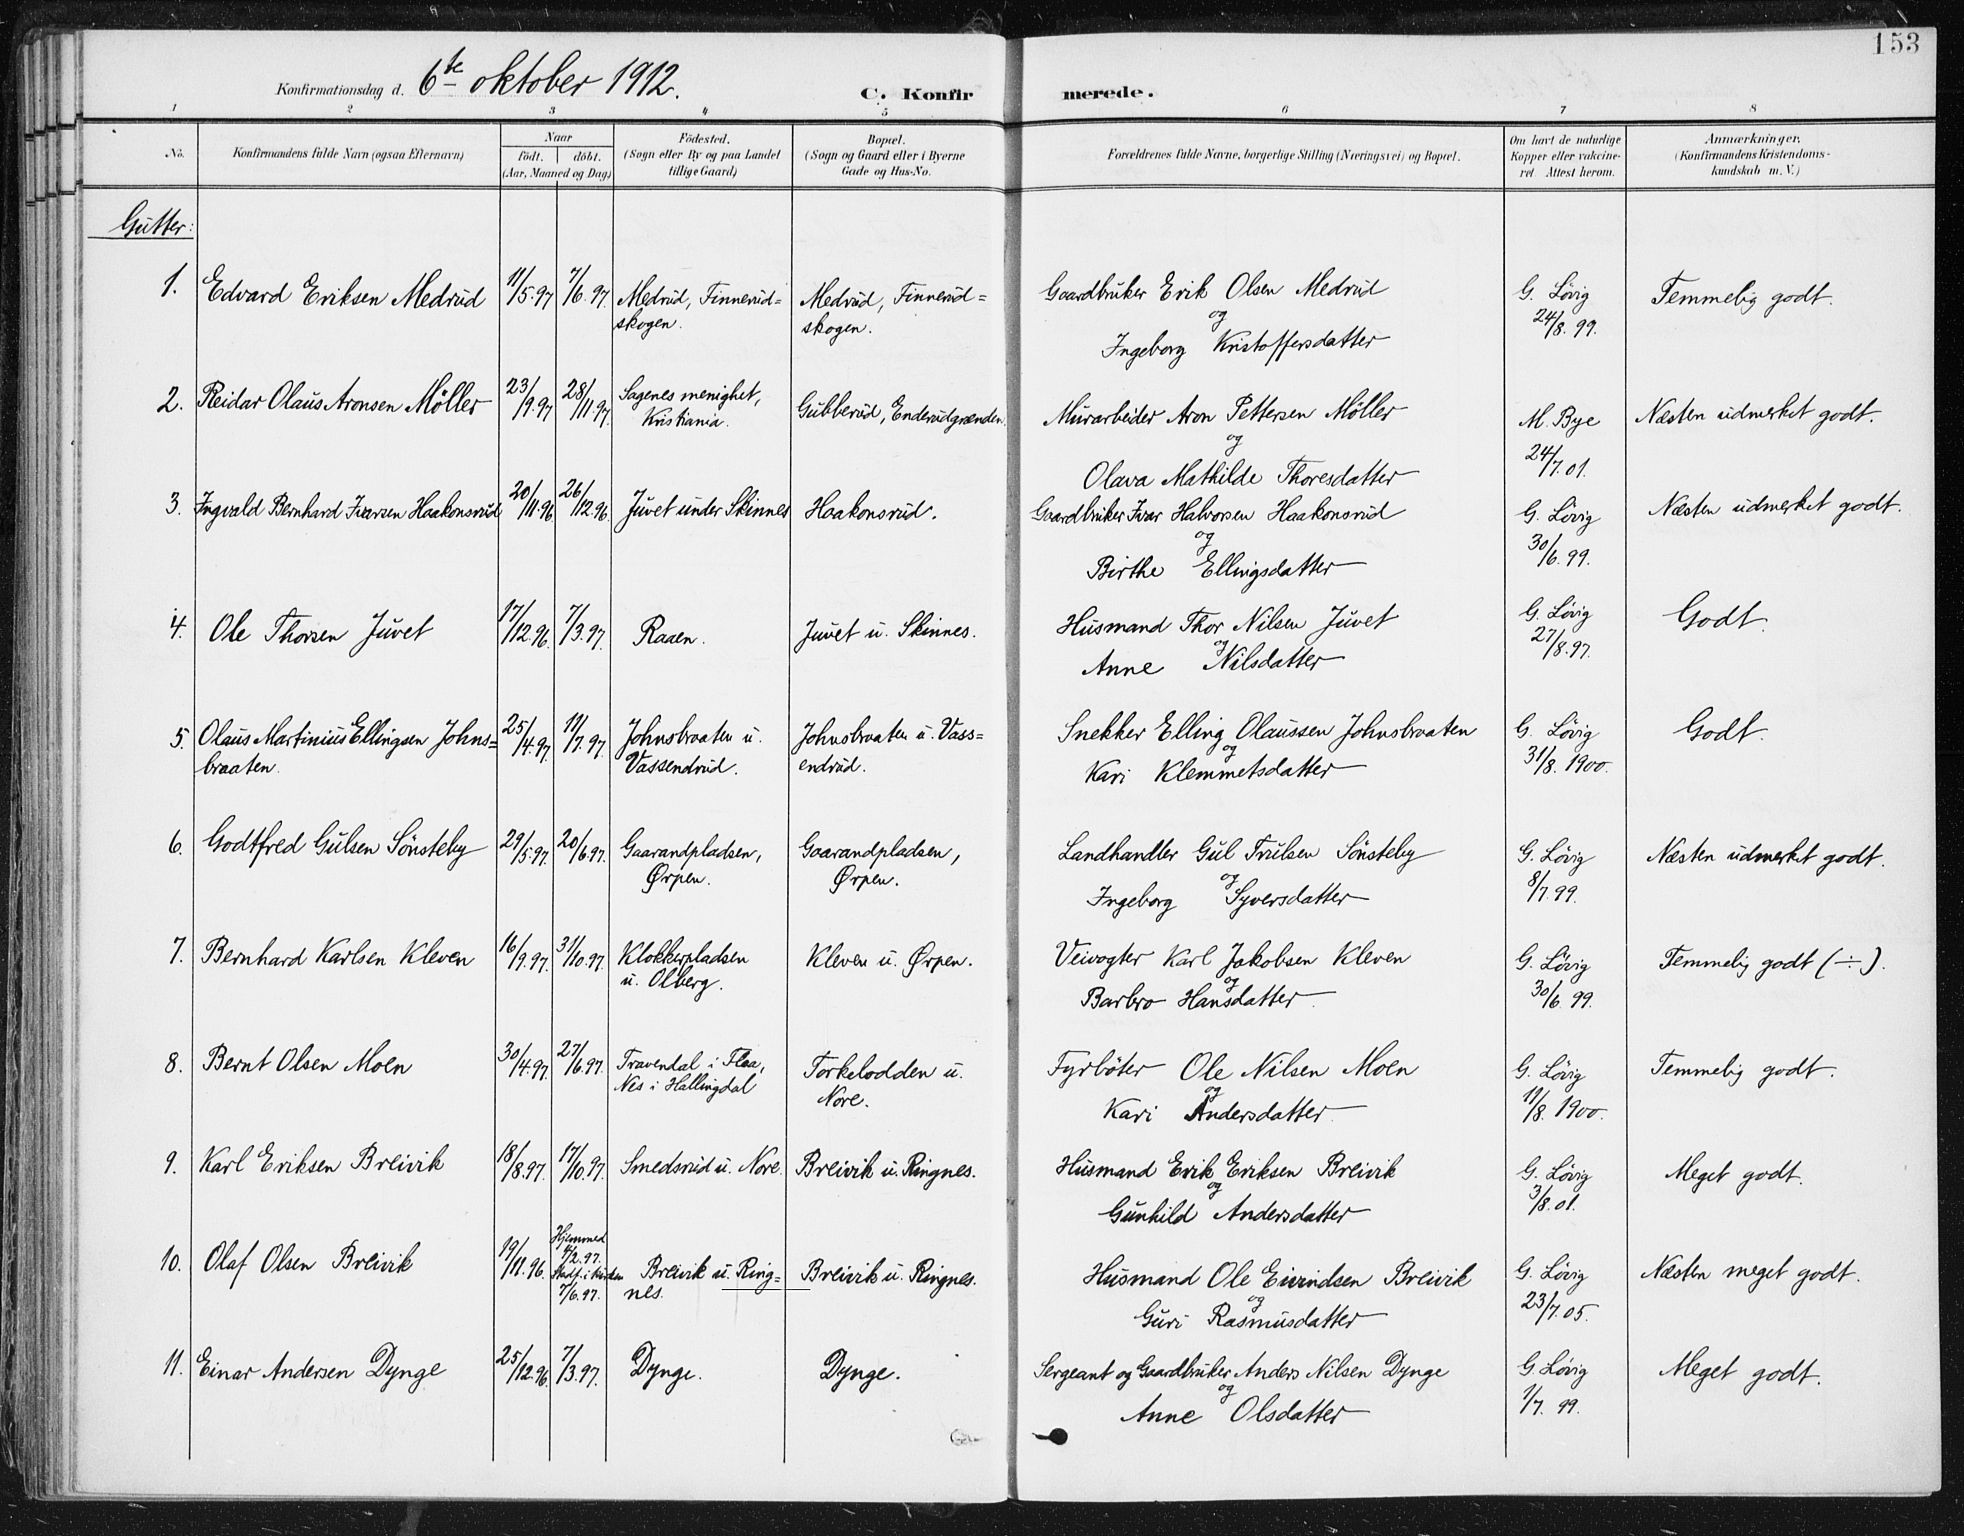 153
Konfirmationsdag d. 6te oktober 1912.
C. Konfirmerede.
1 2 3 4 5 6 7 8
No.
Konfirmandens fulde Navn (ogsaa Efternavn)
Naar
födt. döbt.
(Aar, Maaned og Dag)
Födested.
(Sogn eller By og paa Landet
tillige Gaard)
Bopæl.
(Sogn og Gaard eller i Byerne
Gade og Hus-No.
Forældrenes fulde Navne, borgerlige Stilling (Næringsvei) og Bopæl.
Om havt de naturlige
Kopper eller vakcine-
ret. Attest herom.
Anmærkninger.
(Konfirmandens Kristendoms-
kundskab m. V.)
Gutter:
1. Edvard Eriksen Medrud 11/5.97 7/6.97. Medrud, Finnerud= Medrud, Finnerud= Gaardbruker Erik Olsen Medrud G. Lövig Temmelig godt.
skogen. skogen. og 24/8.99.
Ingeborg Kristoffersdatter
2. Reidar Olaus Aronsen Möller 23/9.97 28/11.97. Sagenes menighet, Gubberud, Enderudgrænden. Murarbeider Aron Pettersen Möller M. Bye Næsten udmerket godt.
Kristiania. og 24/7.01.
Olava Mathilde Thoresdatter
3. Ingvald Bernhard Ivarsen Haakonsrud 20/11.96 26/12.96. Juvet under Skinnes Haakonsrud. Gaardbruker Ivar Halvorsen Haakonsrud G. Lövig Næsten udmerket godt.
og 30/6.99.
Birthe Ellingsdatter
4. Ole Thorsen Juvet 17/12.96. 7/3.97. Raaen. Juvet u. Skinnes. Husmand Thor Nilsen Juvet G. Lövig Godt.
og 27/8.97.
Anne Nilsdatter
5. Olaus Martinius Ellingsen Johns= 25/4.97. 11/7.97. Johnsbraaten u. Johnsbraaten u. Vass= Snekker Elling Olaussen Johnsbraaten G. Lövig Godt.
braaten. Vassendrud. endrud. og 31/8.1900.
Kari Klemmetsdatter
6. Godtfred Gulsen Sönsteby 29/5.97. 20/6.97. Gaarandpladsen, Gaarandpladsen, Landhandler Gul Trulsen Sönsteby G. Lövig Næsten udmerket godt.
Ørpen. Ørpen. og 8/7.99.
Ingeborg Syversdatter
7. Bernhard Karlsen Kleven 16/9.97. 31/10.97. Klokkerpladsen Kleven u. Ørpen. Veivogter Karl Jakobsen Kleven G. Lövig Temmelig godt (÷).
u. Olberg. og 30/6.99.
Barbro Hansdatter
8. Bernt Olsen Moen 30/4.97. 27/6.97. Travendal i Flaa, Torkelodden u. Fyrböter Ole Nilsen Moen G. Lövig Temmelig godt.
Nes i Hallingdal Nore. og 11/8.1900.
Kari Andersdatter
9. Karl Eriksen Breivik 18/8.97. 17/10.97. Smedsrud u. Nore. Breivik u. Ringnes. Husmand Erik Eriksen Breivik G. Lövig Meget godt.
og 3/8.01.
Gunhild Andersdatter
10. Olaf Olsen Breivik 19/11.96. Hjemmed 4/2.97. Stadf. i kirken 7/6.97. Breivik u. Ring= Breivik u. Ringnes. Husmand Ole Eivindsen Breivik G. Lövig Næsten meget godt.
nes. og 23/7.05.
Guri Rasmusdatter
11. Einar Andersen Dynge 25/12.96. 7/3.97. Dynge. Dynge. Sergeant og Gaardbruker Anders Nilsen Dynge G. Lövig Meget godt.
og 1/7.99.
Anne Olsdatter